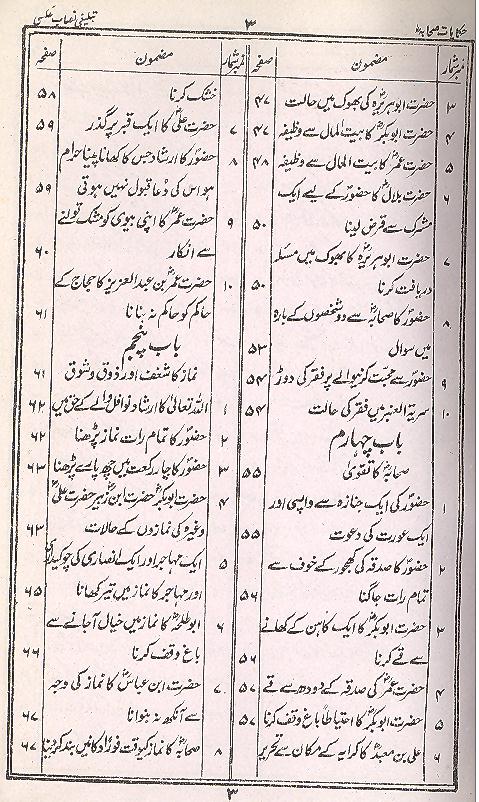 حکایات صحابہؓ
۳
تبلیغی نصاب عکسی
نمبر شمار مضمون صفحہ
۳ حضرت ابوہریرہؓ کی بھوک میں حالت ۴۷
۴ حضرت ابوبکرؓ کا بیت المال سے وظیفہ ۴۷
۵ حضرت عمرؓ کا بیت المال سے وظیفہ ۴۸
۶ حضرت بلالؓ کا حضورؐ کے لیے ایک
مشرک سے قرض لینا ۵۰
۷ حضرت ابوہریرہؓ کا بھوک میں مسئلہ
دریافت کرنا ۵۰
۸ حضورؐ کا صحابہؓ سے دو شخصوں کے بارہ
میں سوال ۵۳
۹ حضورؐ سے محبت کرنیوالے پر فقر کی دوڑ ۵۴
۱۰ سریۃ العنبر میں فقر کی حالت ۵۴
باب چہارم
صحابہؓ کا تقویٰ ۵۵
۱ حضورؐ کی ایک جنازہ سے واپسی اور
ایک عورت کی دعوت ۵۵
۲ حضورؐ کا صدقہ کی کھجور کے خوف سے
تمام رات جاگنا ۵۶
۳ حضرت ابوبکرؓ کا ایک کاہن کے کھانے
سے قے کرنا ۵۶
۴ حضرت عمرؓ کی صدقہ کے دودھ سے قے ۵۷
۵ حضرت ابوبکرؓ کا احتیاطاً باغ وقف کرنا ۵۷
۶ علی بن معبدؒ کا کرایہ کے مکان سے تحریر
نمبر شمار مضمون صفحہ
خشک کرنا ۵۸
۷ حضرت علیؓ کا ایک قبر پر گذر ۵۹
۸ حضورؐ کا ارشاد جس کا کھانا پینا حرام
ہو اس کی دُعا قبول نہیں ہوتی ۵۹
۹ حضرت عمرؓ کا اپنی بیوی کو مشک تولنے
سے انکار ۶۰
۱۰ حضرت عمرؒ بن عبدالعزیز کا حجاج کے
حاکم کو حاکم نہ بنانا ۶۱
باب پنجم
نماز کا شغف اور ذوق و شوق ۶۱
۱ اللہ تعالیٰ کا ارشاد نوافل والے کے حق میں ۶۲
۲ حضورؐ کا تمام رات نماز پڑھنا ۶۲
۳ حضورؐ کا چار رکعت میں چھ پارے پڑھنا ۶۳
۴ حضرت ابوبکرؓ حضرت ابن زبیرؓ حضرت علیؓ
وغیرہ کی نمازوں کے حالات ۶۳
۵ ایک مہاجر اور ایک انصاری کی چوکیداری
اور مہاجر کا نماز میں تیر کھانا ۶۵
۶ ابوطلحہؓ کا نماز میں خیال آجانے سے
باغ وقف کرنا ۶۶
۷ حضرت ابن عباسؓ کا نماز کی وجہ
سے آنکھ نہ بنوانا ۶۷
۸ صحابہؓ کا نماز کیوقت فوراً دکانیں بند کردینا ۶۷
۳